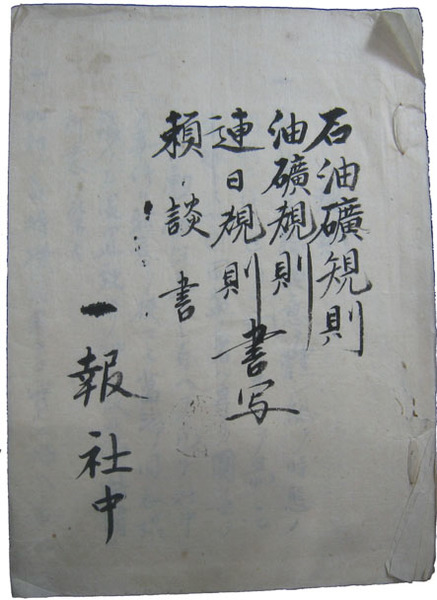 石油礦規則
油礦規則書写
連日規則
頼談書
一報社中